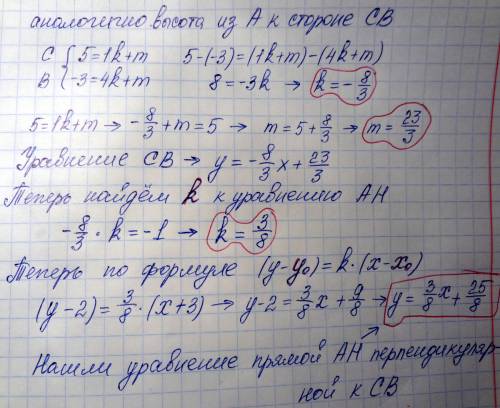 аналогично высота из А к стороне СВ
С { 5=1k+m   5-(-3)=(1k+m)-(4k+m)
В { -3=4k+m   8=-3k → k=-8/3
5=1k+m → -8/3+m=5 → m=5+8/3 → m=23/3
Уравнение СВ → y=-8/3x+23/3
Теперь найдём k к уравнению АН
-8/3·k=-1 → k=3/8
Теперь по формуле (y-y₀)=k·(x-x₀)
(y-2)=3/8·(x+3) → y-2=3/8x+9/8 → y=3/8x+25/8
Нашли уравнение прямой АН перпендикуляр-
ной к СВ